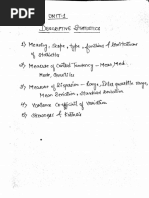 UNIT-1
DESCRIPTIVE STATISTICS
1) Meaning, Scope, type, functions & limitations
of statistics
2) Measure of Central Tendency - Mean, Med
Mode, Quartiles
3) Measure of Dispersion - Range, Inter quartile range,
Mean Deviation, Standard deviation
4) Variance Coefficient of Variation
5) Skewness & Kurtosis